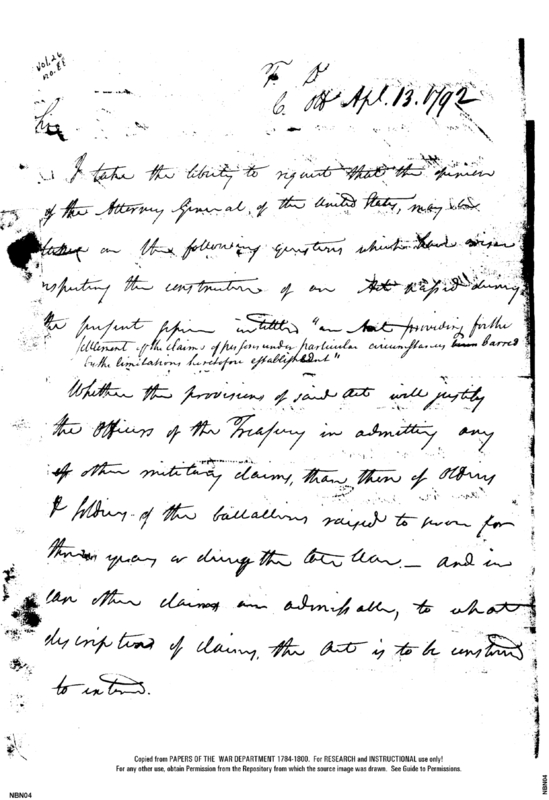 Vol. 26
no. 88
T. D
C. Off Apl. 13. 1792
Sir
I take the liberty to request that the opinion
of the Attorney General, of the United States, may be
taken on the following questions which have arisen
respecting the construction of an Act passed during
the present session intitled "an Act providing for the
settlement of the claims of persons under particular circumstances barred
by the limitations heretofore established"
Whether the provisions of said Act will justify
the Officers of the Treasury in admitting any
other military claims, than those of
& soldiers of the battallions raised to serve for
three years or during the late War. — and in
can other claims are admissable, to what
description of claims, the Act is to be construed
to intend.
Copied from PAPERS OF THE WAR DEPARTMENT 1784-1800. For RESEARCH and INSTRUCTIONAL use only!
For any other use, obtain Permission from the Repository from which the source image was drawn. See Guide to Permissions.
NBN04
NBN04